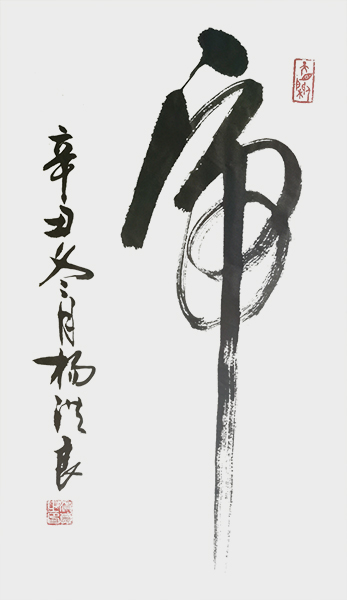 虎
辛丑冬月杨洪良